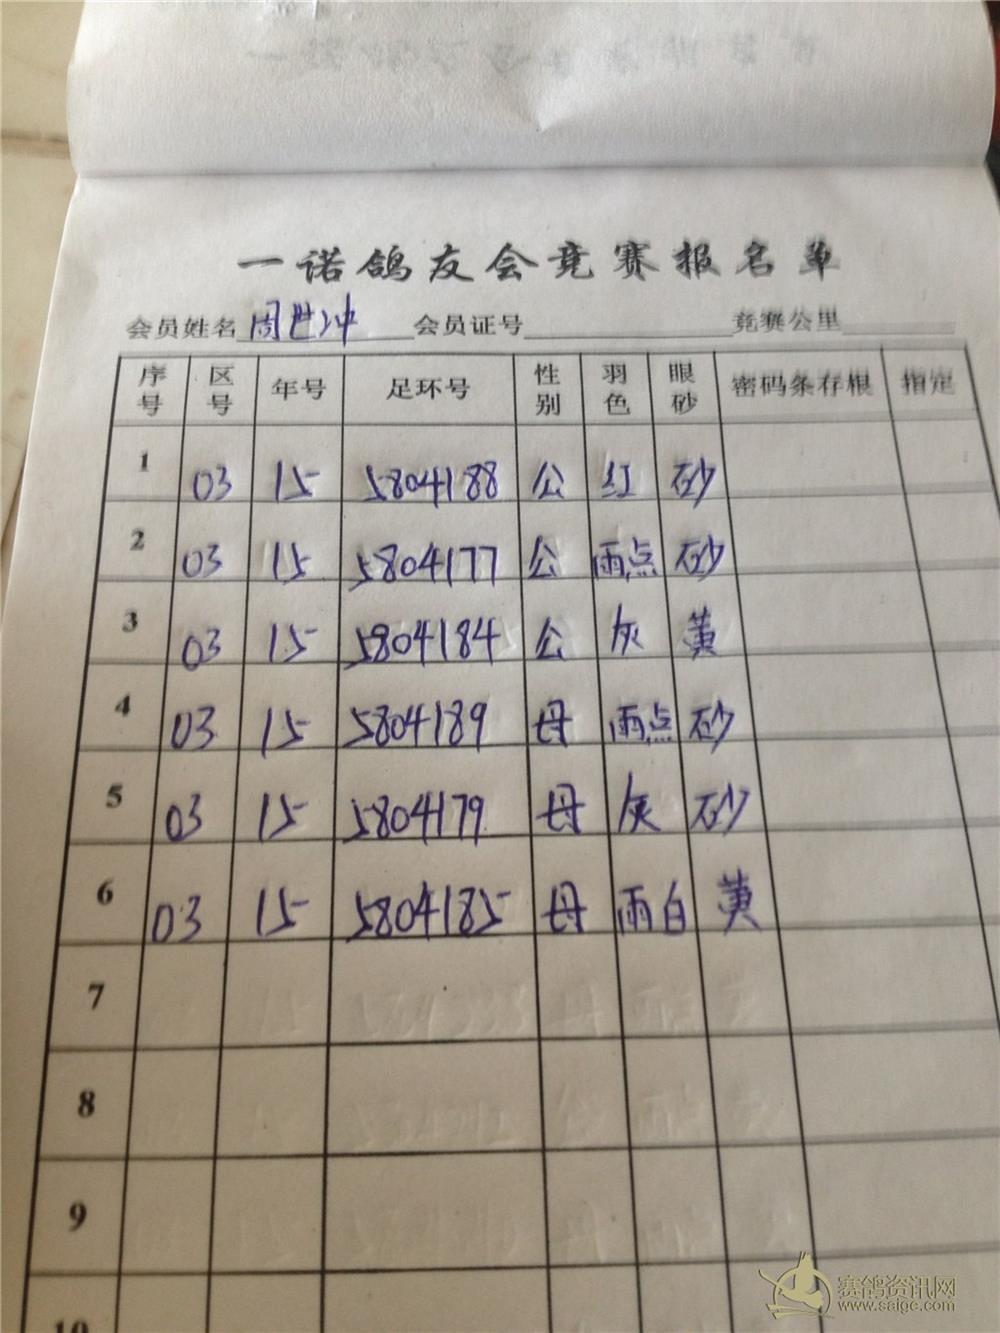 一诺鸽友会竞赛报名单
会员姓名 周世冲 会员证号 竞赛公里
序号 区号 年号 足环号 性别 羽色 眼砂 密码条存根 指定
1 03 15 5804188 公 红 砂
2 03 15 5804177 公 雨点 砂
3 03 15 5804184 公 灰 黄
4 03 15 5804189 母 雨点 砂
5 03 15 5804179 母 灰 砂
6 03 15 5804185 母 雨白 黄
7
8
9
10
赛鸽资讯网
www.saige.com